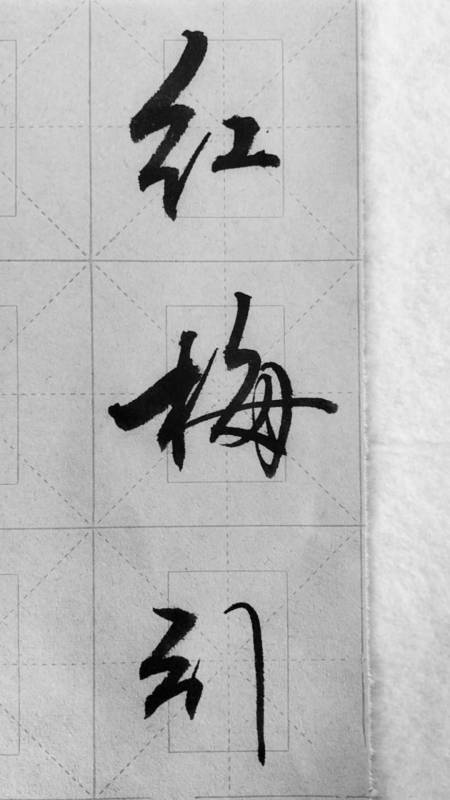 红梅引